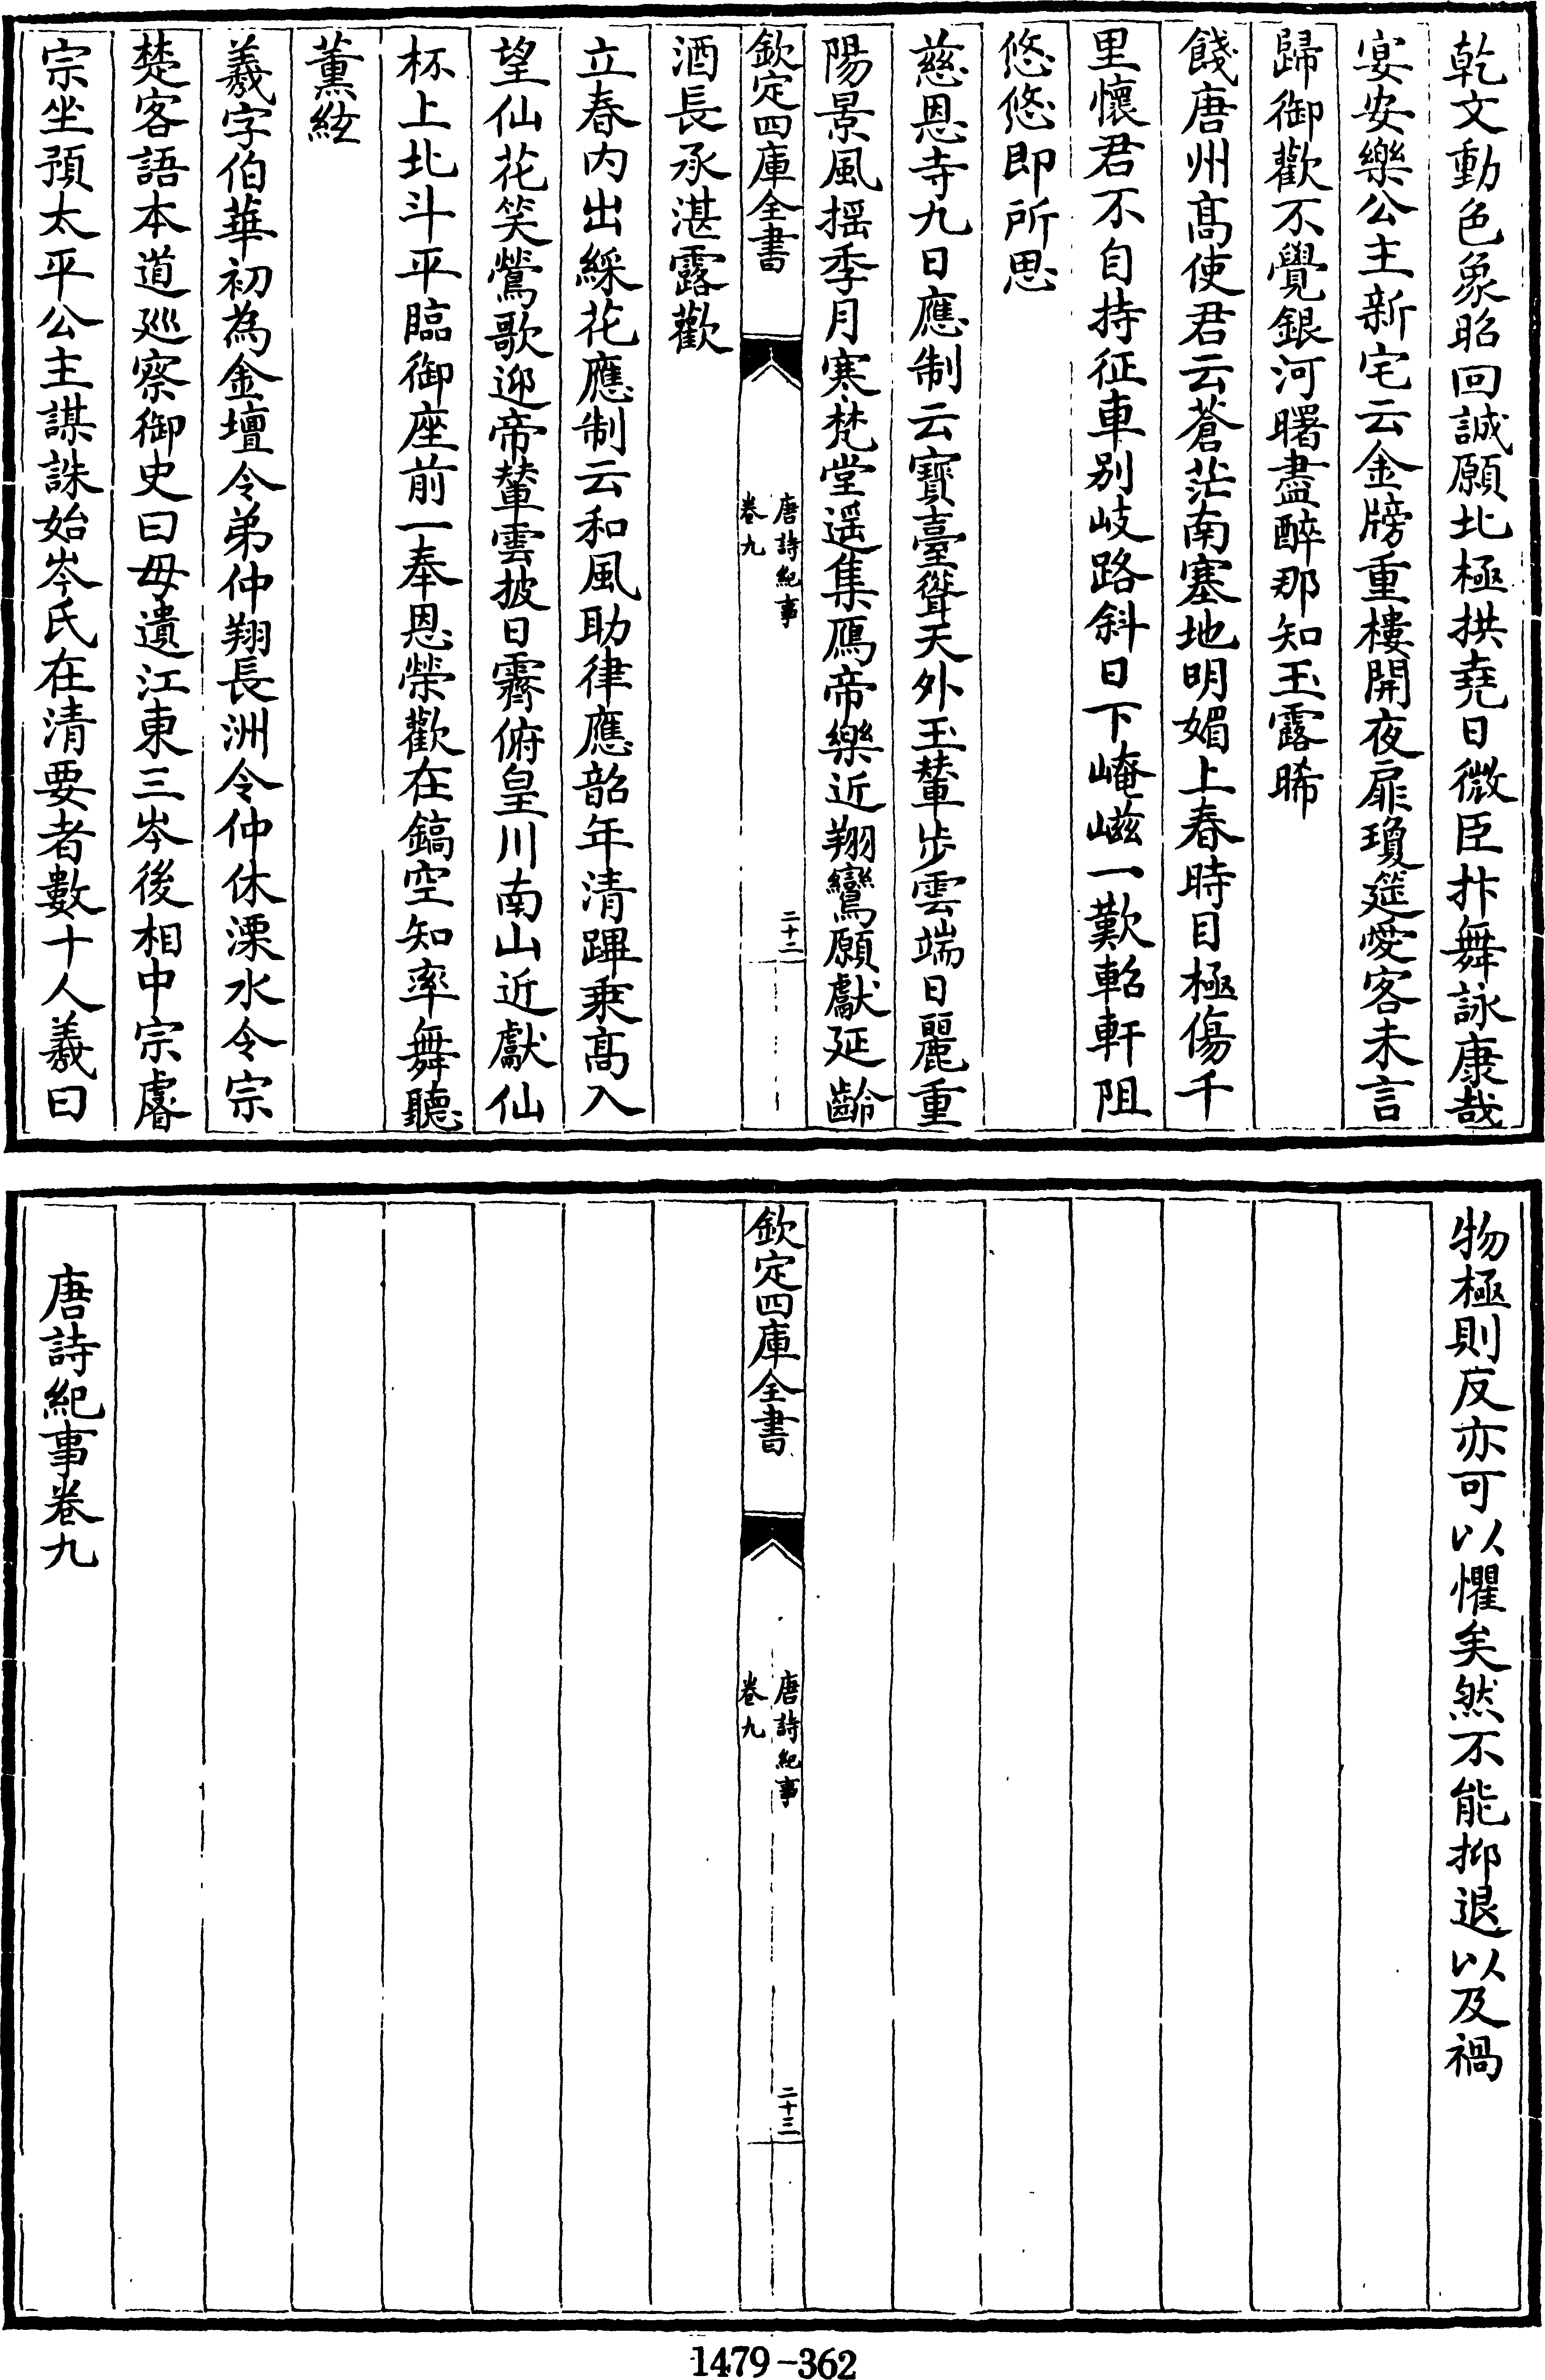 乾文動色象昭回誠願北極拱堯日微臣抃舞詠康哉
宴安樂公主新宅云金牓重樓開夜扉瓊筵愛客未言
歸御歡不覺銀河曙盡醉那知玉露晞
餞唐州髙使君云蒼茫南塞地明媚上春時目極傷千
里懷君不自持征車别岐路斜日下崦嵫一歎軺軒阻
悠悠即所思
慈恩寺九日應制云寳臺聳天外玉輦步雲端日麗重
陽景風揺季月寒梵堂遥集鴈帝樂近翔鸞願獻延齡
欽定四庫全書
唐詩紀事
卷九
二十二
酒長承湛露歡
立春内出綵花應制云和風助律應韶年清蹕乗髙入
望仙花笑鶯歌迎帝輦雲披日霽俯皇川南山近獻仙
杯上北斗平臨御座前一奉恩榮歡在鎬空知率舞聽
薫絃
羲字伯華初為金壇令弟仲翔長洲令仲休溧水令宗
楚客語本道廵察御史曰毋遺江東三岑後相中宗睿
宗坐預太平公主謀誅始岑氏在清要者數十人羲曰
物極則反亦可以懼矣然不能抑退以及禍
欽定四庫全書
唐詩紀事
卷九
二十三
唐詩紀事卷九
1479-362